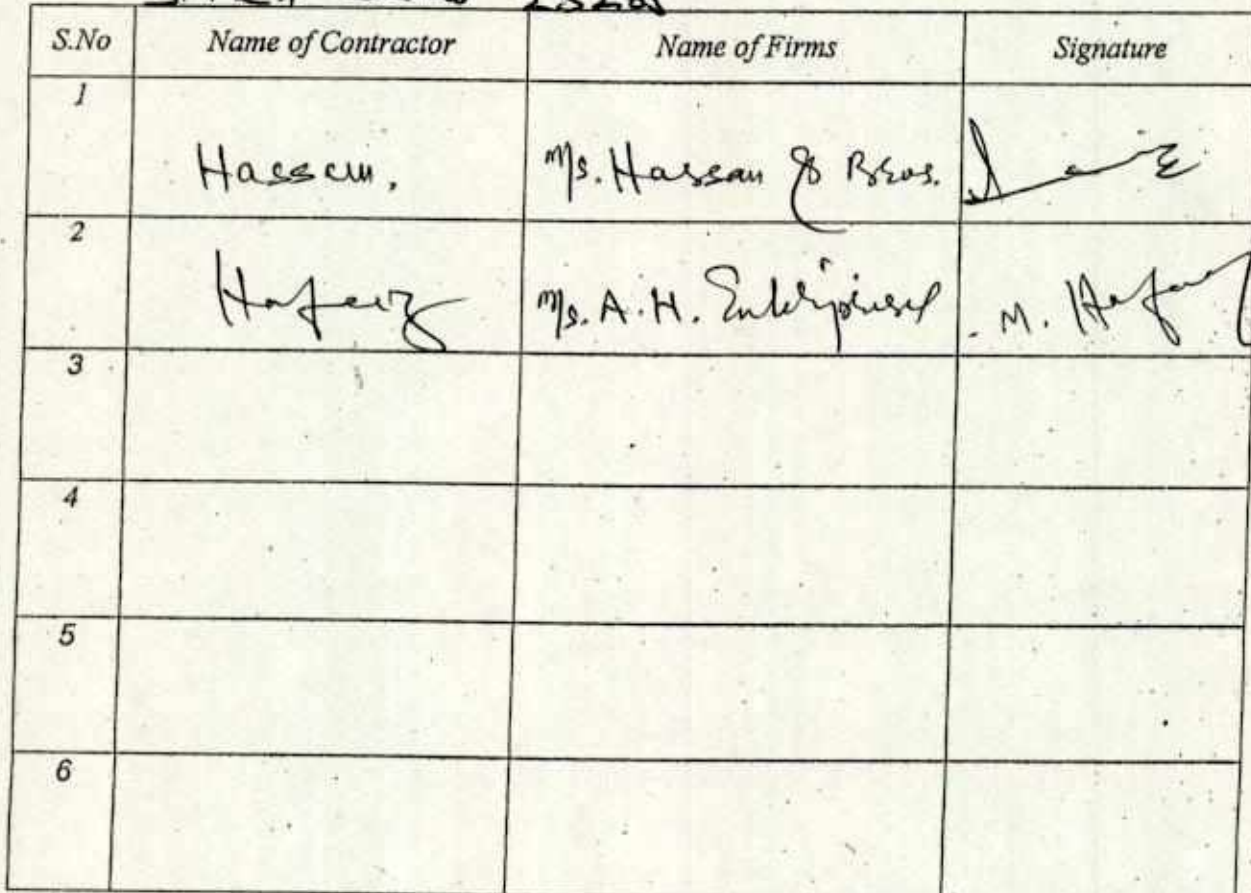 S.No Name of Contractor Name of Firms Signature
1
Hassan. M/s. Hassan & Bros.
2
Hafeez M/s. A.H. Enterprises M. Hafeez
3
4
5
6